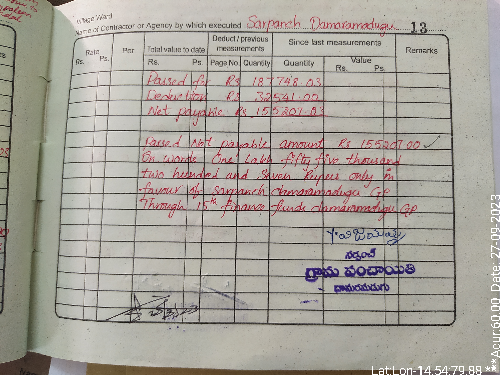 Village Ward
Name of Contractor or Agency by which executed Sarpanch Damaramadugu 13
Rate Per Total value to date Deduct / previous measurements Since last measurements Remarks
Rs. Ps. Rs. Ps. Page No. Quantity Quantity Value
Rs. Ps.
Passed for Rs 187748.03
Deduction Rs 32541.00
Net payable Rs 155207.03
Passed Net payable amount Rs 155207.00 ✓
On words One Lakh fifty five thousand
two hundred and Seven Rupees only in
favour of sarpanch damaramadugu GP
Through 15th finance funds damaramadugu GP
సర్పంచ్
గ్రామ పంచాయితి
దామరమడుగు
Lat Lon-14.54:79.88 **Acur:60.00 Date: 27-09-2023